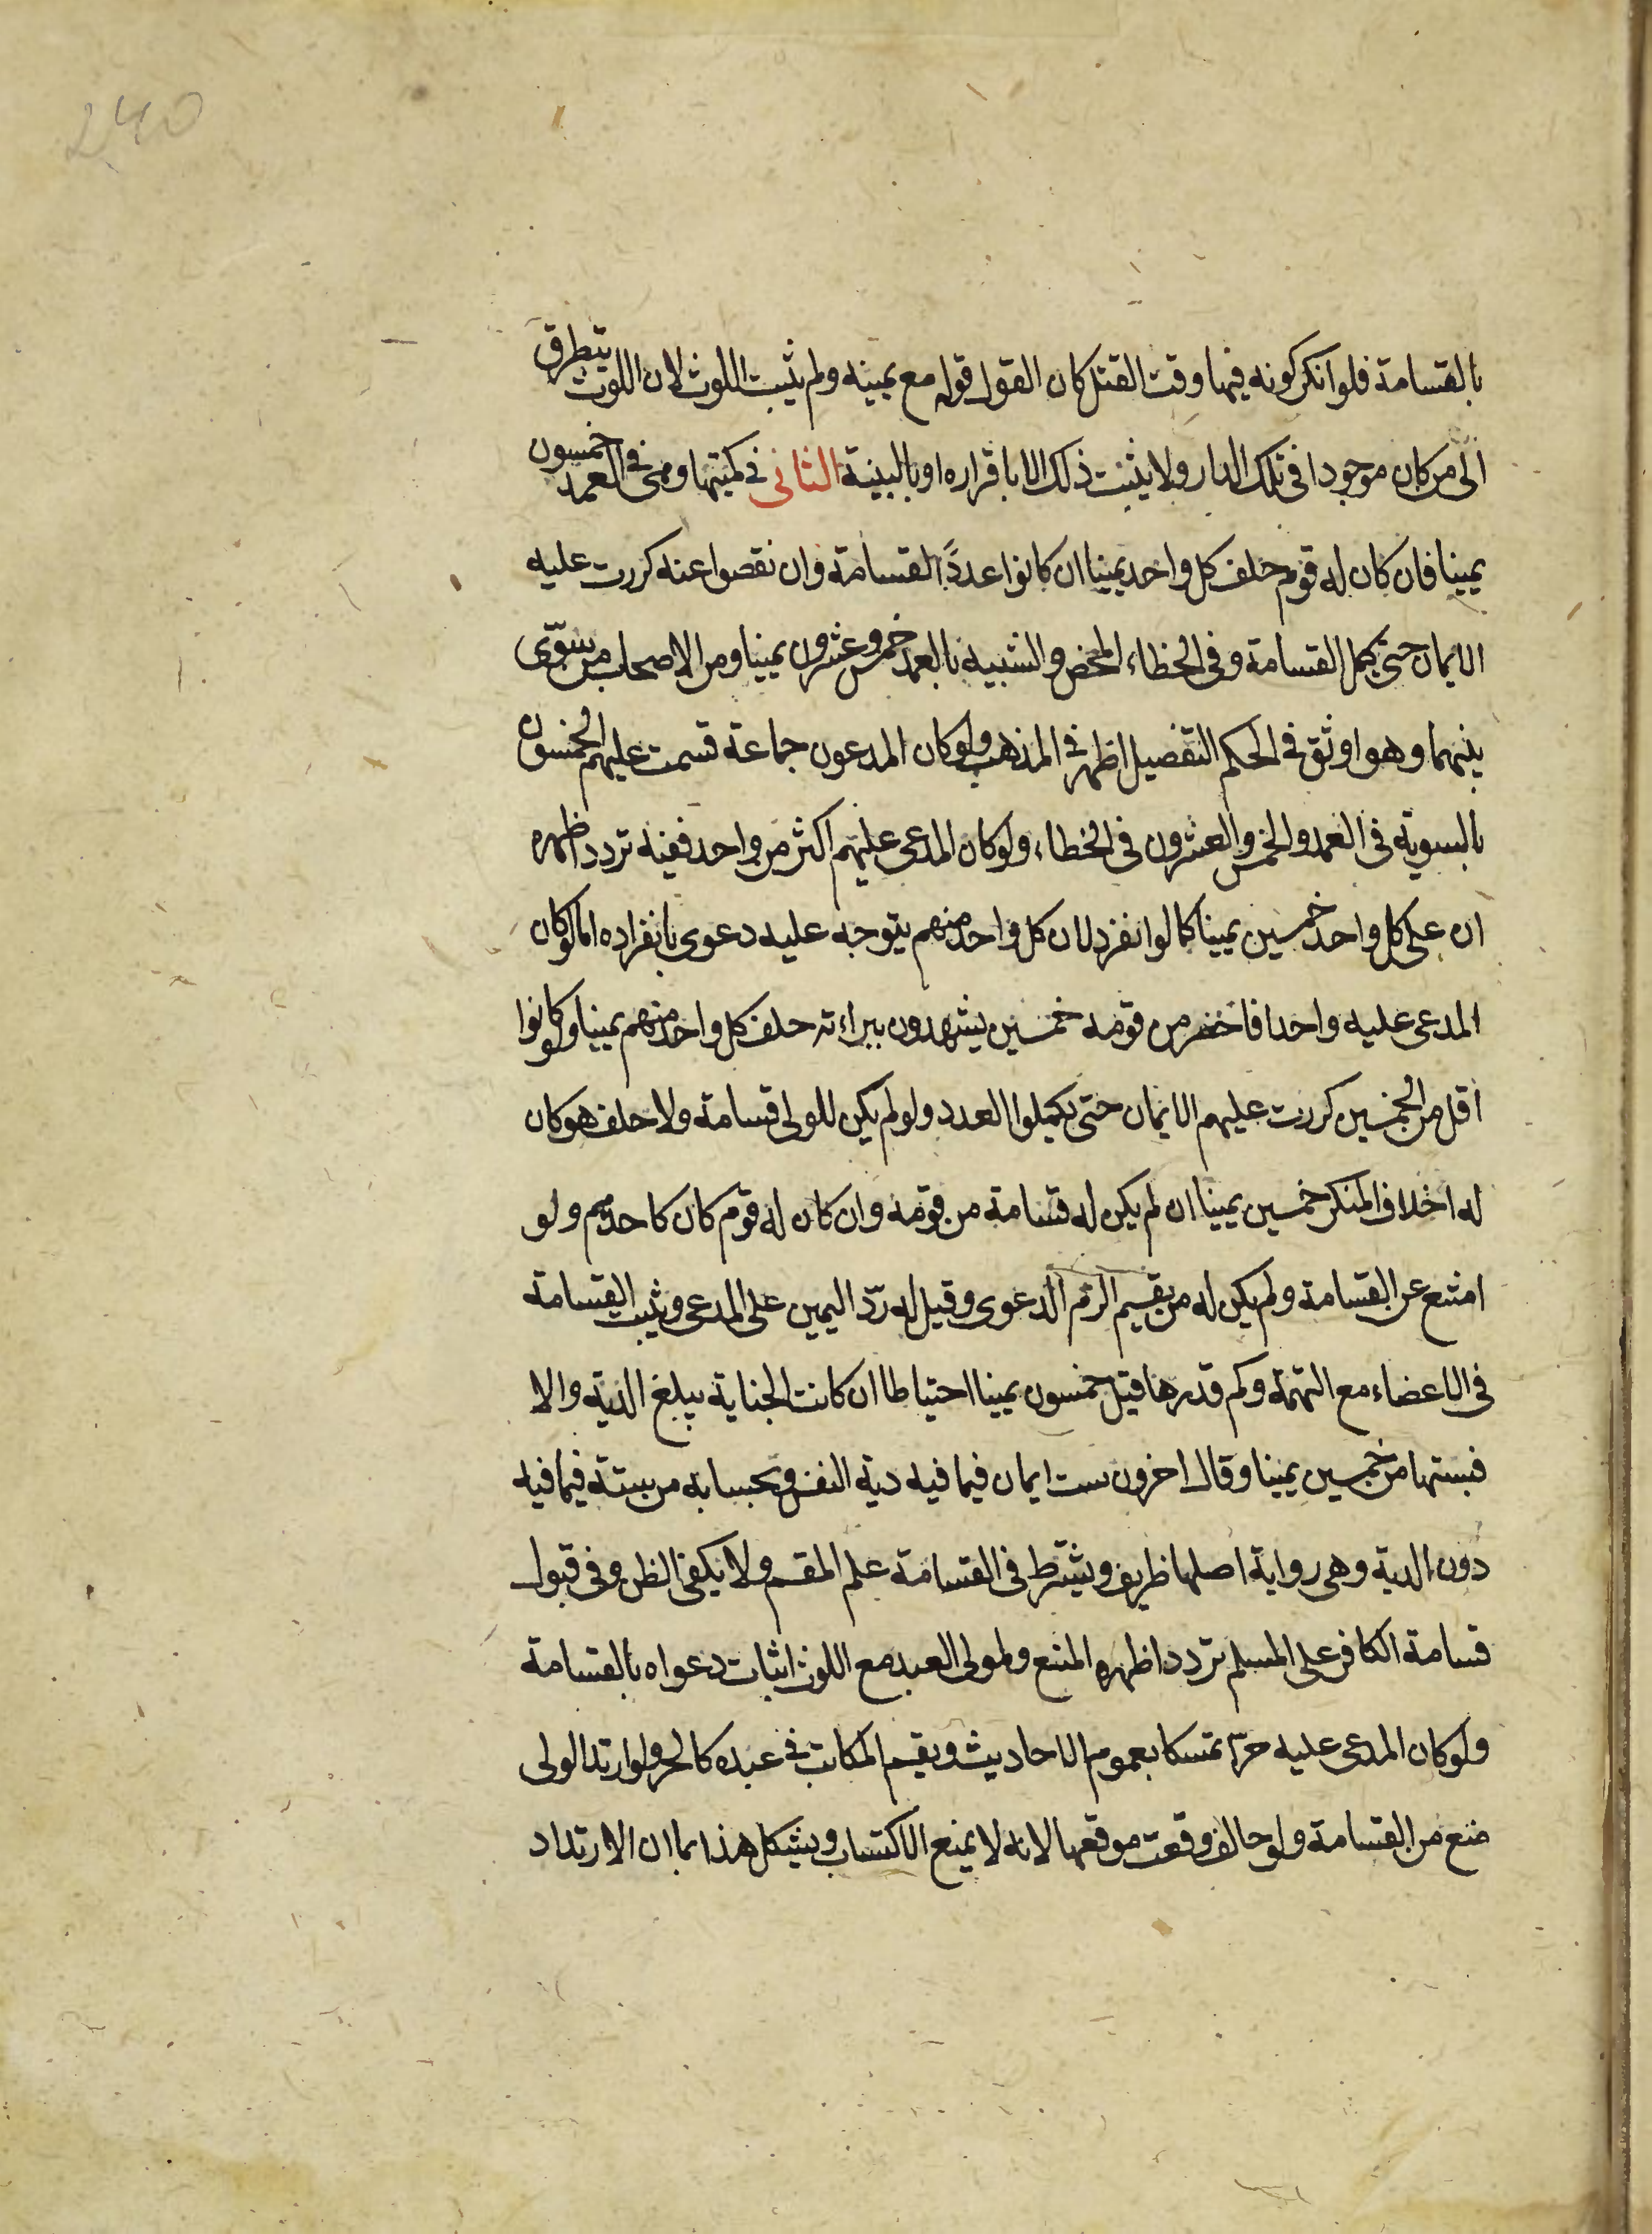 240
بالقسامة فلو انكر كونه فيها وقت القتل كان القول قوله مع يمينه ولم يثبت اللوث لان اللوث يتطرق
الى من كان موجودا فى تلك الدار ولا يثبت ذلك الا باقراره او بالبينة الثانى فى كميتها وهى فى العمد خمسون
يمينا فان كان له قوم حلف كل واحد يمينا ان كانوا عدد القسامة وان نقصوا عنه كررت عليه
الايمان حتى يكمل القسامة وفى الخطاء المحض والشبيه بالعمد خمس وعشرون يمينا ومن الاصحاب من سوّى
بينهما وهو اوثق فى الحكم التفصيل اظهر فى المذهب ولو كان المدعون جماعة قسمت عليهم الخمسون
بالسوية فى العمد والخمس والعشرون فى الخطاء ولو كان المدعى عليهم اكثر من واحد ففيه تردد اظهره
ان على كل واحد خمسين يمينا كما لو انفرد لان كل واحد منهم يتوجه عليه دعوى بانفراده اما لو كان
المدعى عليه واحدا فاحضر من قومه خمسين يشهدون ببراءته حلف كل واحد منهم يمينا ولو كانوا
اقل من الخمسين كررت عليهم الايمان حتى يكملوا العدد ولو لم يكن للولى قسامة ولا حلف هو كان
له احلاف المنكر خمسين يمينا ان لم يكن له قسامة من قومه وان كان له قوم كان كاحدهم ولو
امتنع عن القسامة ولم يكن له من يقسم الزم الدعوى وقيل له ردّ اليمين على المدعى ويثبت القسامة
فى الاعضاء مع التهمة وكم قدرها قيل خمسون يمينا احتياطا ان كانت الجناية يبلغ الدية والا
فبنسبتها من خمسين يمينا وقال اخرون ست ايمان فيما فيه دية النفس وبحسابه من ستة فيما فيه
دون الدية وهى رواية اصلها ظريف ويشترط فى القسامة علم المقسم ولا يكفى الظن وفى قبول
قسامة الكافر على المسلم تردد اظهره المنع ولمولى العبد مع اللوث اثبات دعواه بالقسامة
ولو كان المدعى عليه حرّا تمسكا بعموم الاحاديث ويقسم المكاتب فى عبده كالحر ولو ارتد الولى
منع من القسامة ولو حالف وقعت موقعها لانه لا يمنع الاكتساب ويشكل هذا بما ان الارتداد